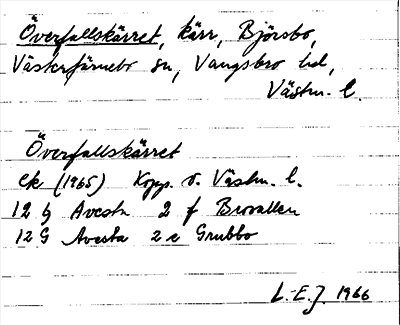 Överfallskärret, kärr, Björsbo,
Västerfärnebo sn, Vangsbro hd,
Västm. l.
Överfallskärret
ek (1965) Kopp. o. Västm. l.
12 G Avesta 2 f Brovallen
12 G Avesta 2 e Grubbo
L-E.J. 1966